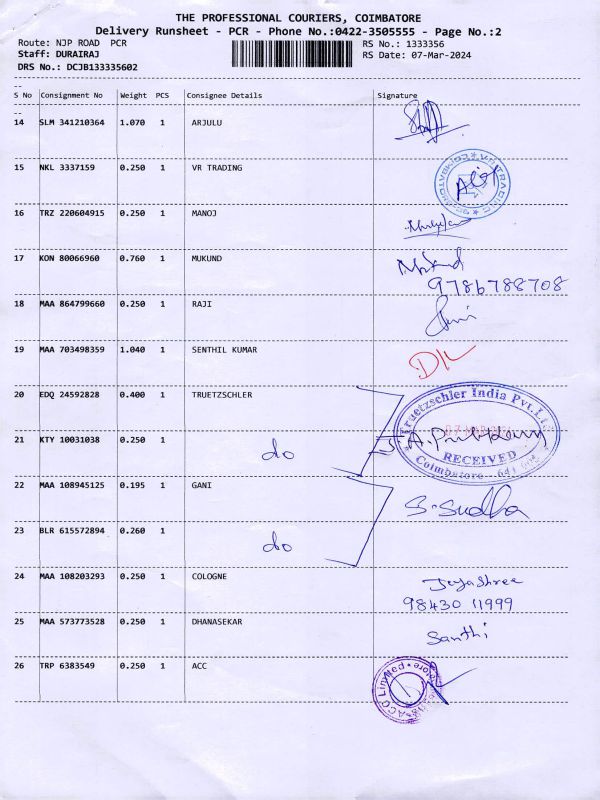 THE PROFESSIONAL COURIERS, COIMBATORE
Delivery Runsheet - PCR - Phone No.:0422-3505555 - Page No.:2
Route: NJP ROAD PCR RS No.: 1333356
Staff: DURAIRAJ RS Date: 07-Mar-2024
DRS No.: DCJB133335602
--
S No Consignment No Weight PCS Consignee Details Signature
--
14 SLM 341210364 1.070 1 ARJULU
15 NKL 3337159 0.250 1 VR TRADING
VR TRADING
16 TRZ 220604915 0.250 1 MANOJ
17 KON 80066960 0.760 1 MUKUND
9786788708
18 MAA 864799660 0.250 1 RAJI
19 MAA 703498359 1.040 1 SENTHIL KUMAR
20 EDQ 24592828 0.400 1 TRUETZSCHLER
Truetzschler India Pvt.Lt
21 KTY 10031038 0.250 1 do
RECEIVED
Coimbatore
22 MAA 108945125 0.195 1 GANI
S. Sudha
23 BLR 615572894 0.260 1 do
24 MAA 108203293 0.250 1 COLOGNE Jeyashree
98430 11999
25 MAA 573773528 0.250 1 DHANASEKAR Santhi
26 TRP 6383549 0.250 1 ACC
ACC Limited